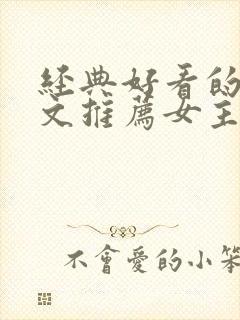 經典好看的
文推薦女主
不會愛的小笨